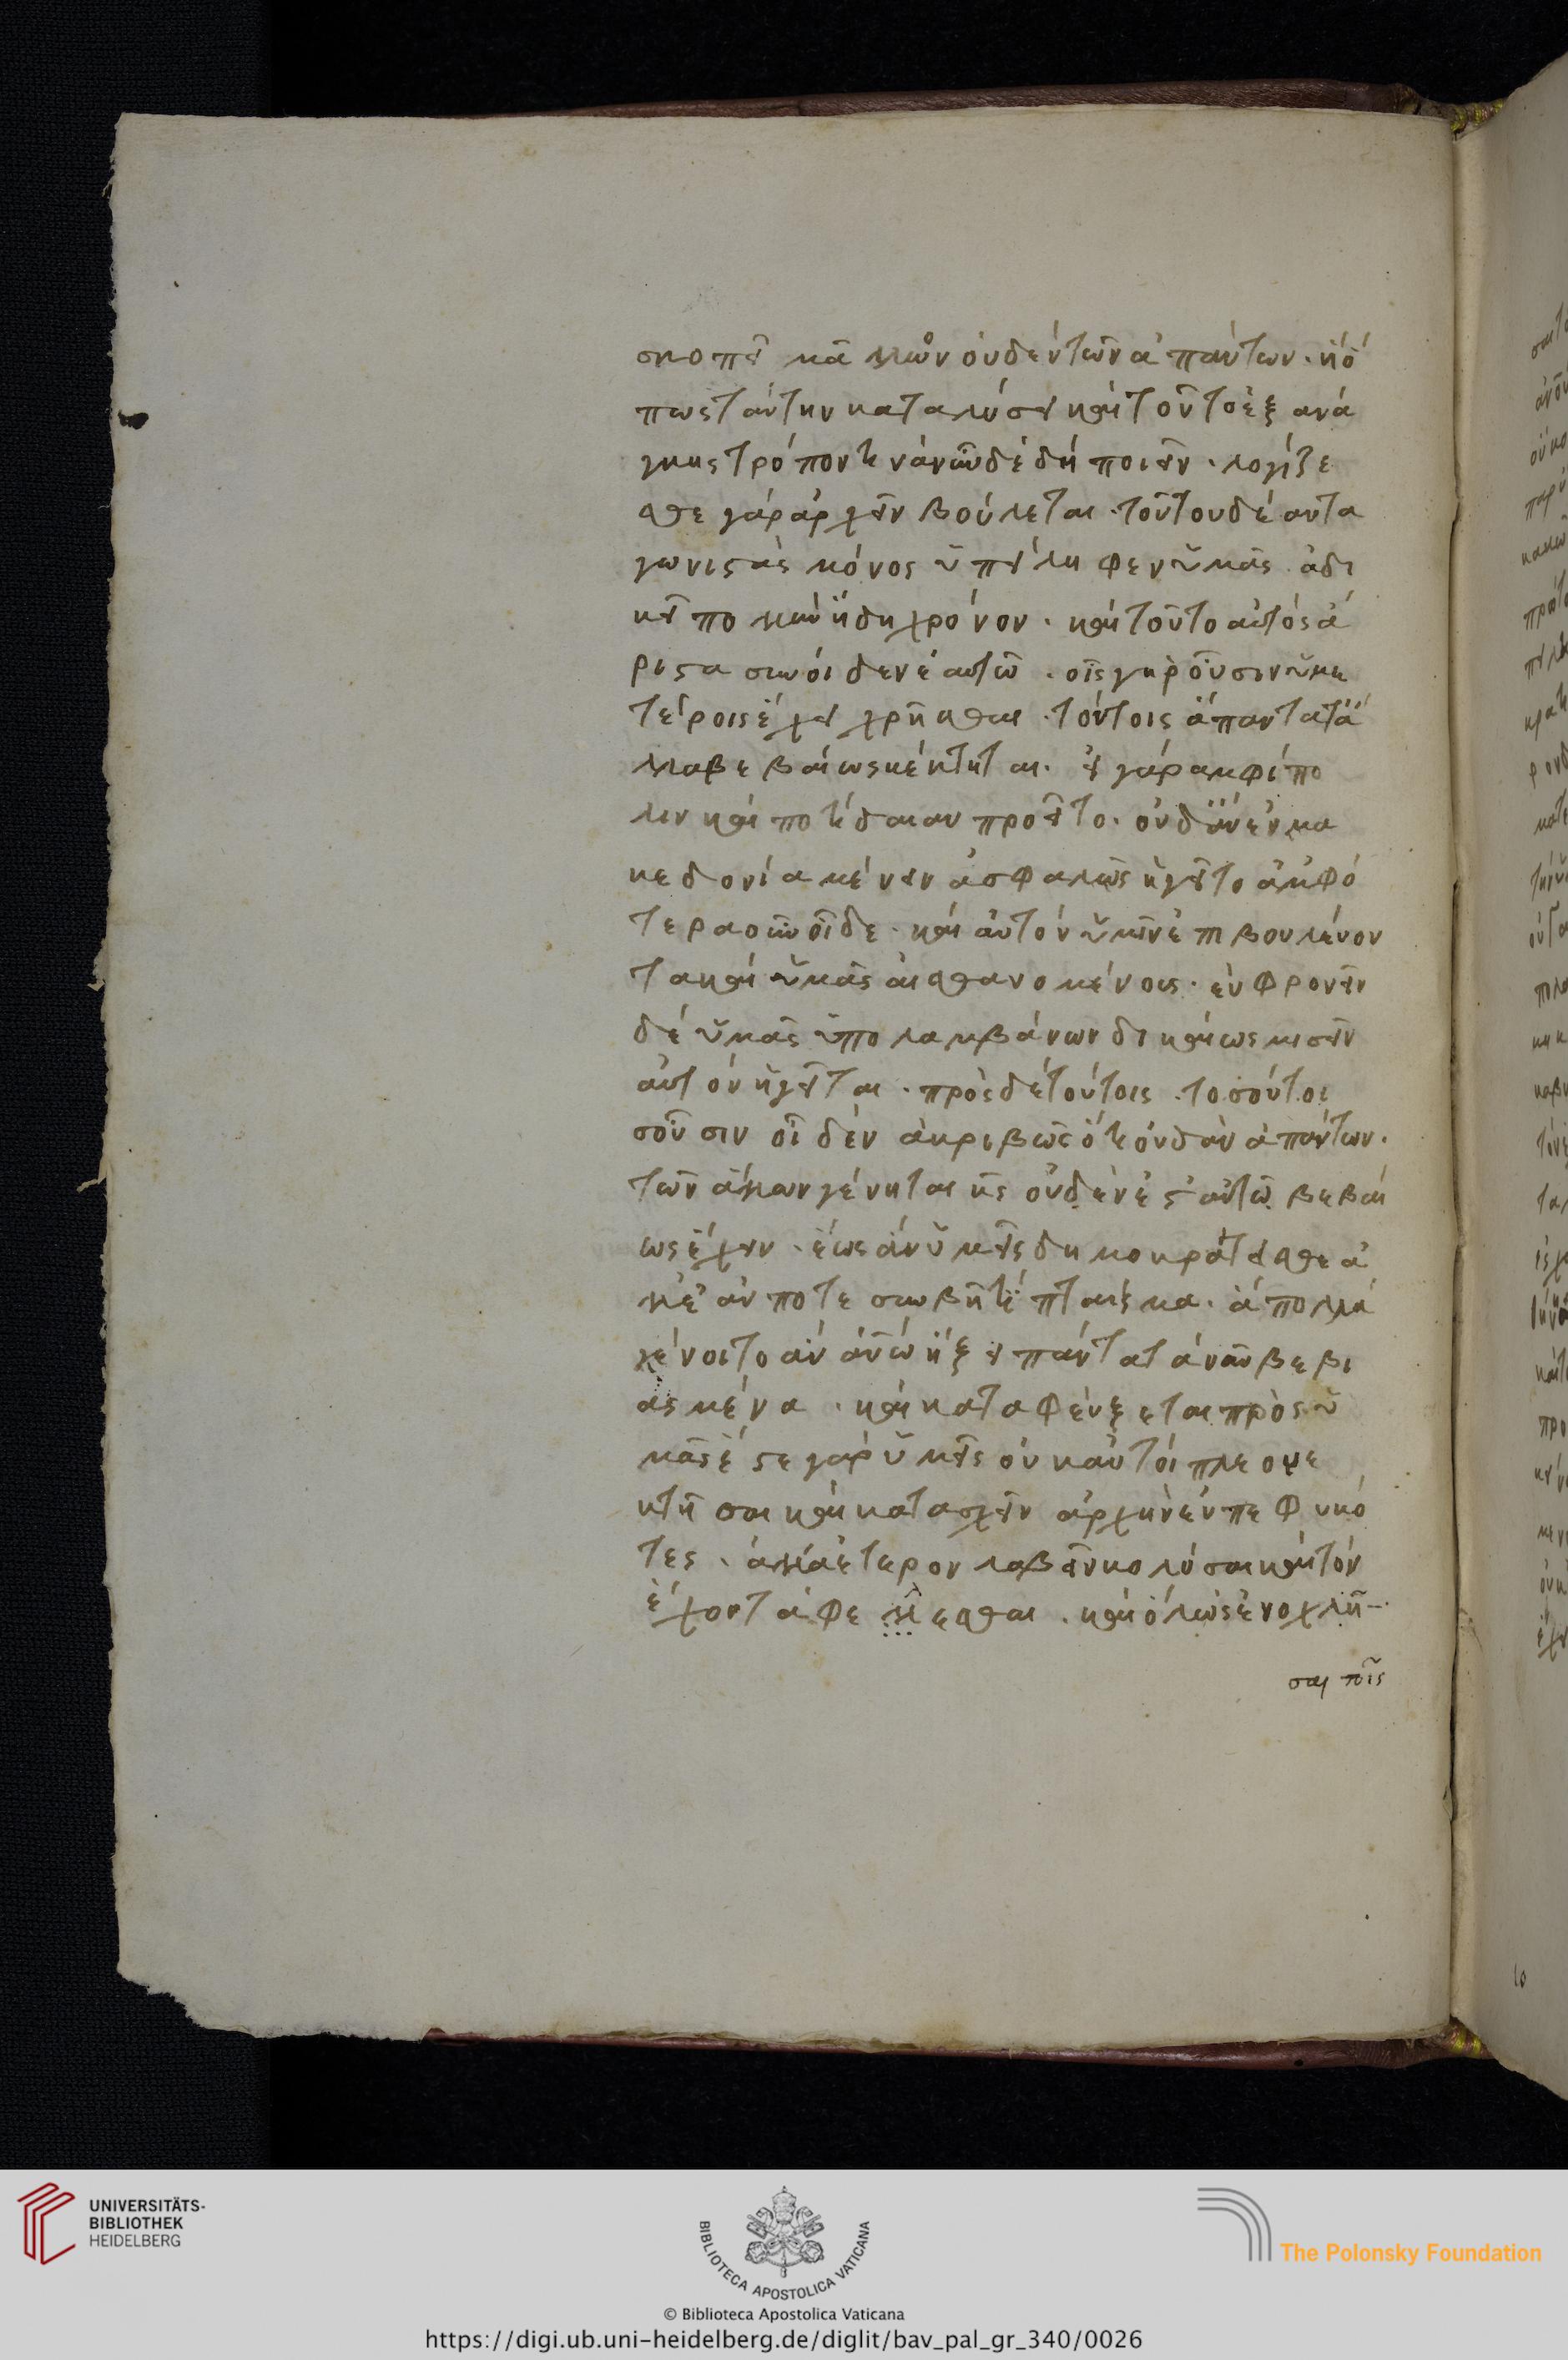 σκοπεῖ μᾶλλον οὐδὲν τῶν ἁπάντων · ἢ ὅ
πως ταύτην καταλύσει καὶ τοῦτ' ἐξ ανά
γκης τρόπον τιν' άν ῶδέ δή ποιεῖν · λογίζε
σθε γάρ ἀρχεῖν βούλεται · τοῦτου δέ αντα
γωνιςὰς μόνος ὑπείληφεν ὑμᾶς · ἀδι
κεῖ πολλὺν ἤδη χρόνον · καὶ τοῦτο αὐτός ἄ
ριςα σύνοιδεν ἑαυτῶ · οἷς γαρ οὖσιν ὑμε
τέροις ἔχει χρῆσθαι · τούτοις ἅπαντα τἄ
λλα βεβαίως κέκτηται · εἰ γάρ αμφίπο
λιν καὶ ποτίδαιαν προεῖτο · οὐδ' ἄν ἐν μα
κεδονία μένειν ἀσφαλῶς ἡγεῖτο ἀμφό
τερα οὖν οἶδε · καὶ αὐτόν ὑμῖν ἐπιβουλεύον
τα καὶ ὑμᾶς αισθανομένους · εὐφρονεῖν
δέ ὑμᾶς ὑπολαμβάνων δικαίως μισεῖν
αὐτόν ἡγεῖται · πρὸς δέ τούτοις · τοσούτοι
σοῦσιν οἶδέν ἀκριβῶς ὅτι οὐδ' ἂν ἁπάντων ·
τῶν ἄλλων γένηται κῆς οὐδὲν ἔς' αὐτῶ βεβαί
ως ἔχειν · ἕως ἄν ὑμεῖς δημοκρατεῖσθε ἀ
λλ' ἐάν ποτε συμβῆ τί πταίσμα · ἃ πολλά
γένοιτο ἂν ἀνῶ ἥξει πάντα τά νῦν βεβι
ασμένα · καὶ καταφεύξεται πρὸς ὑ
μᾶς ἔςε γάρ ὑμεῖς οὐκ αὐτοί πλεοψε
κτῆσαι καὶ κατασχεῖν ἀρχὴν εὖ πεφυκό
τες · ἀλλά ἕτερον λαβεῖν κολύσαι καὶ τόν
ἔχοντ' ἀφελλεσθαι · καὶ ὅλως ἐνοχλῆ-
σαι τοῖς